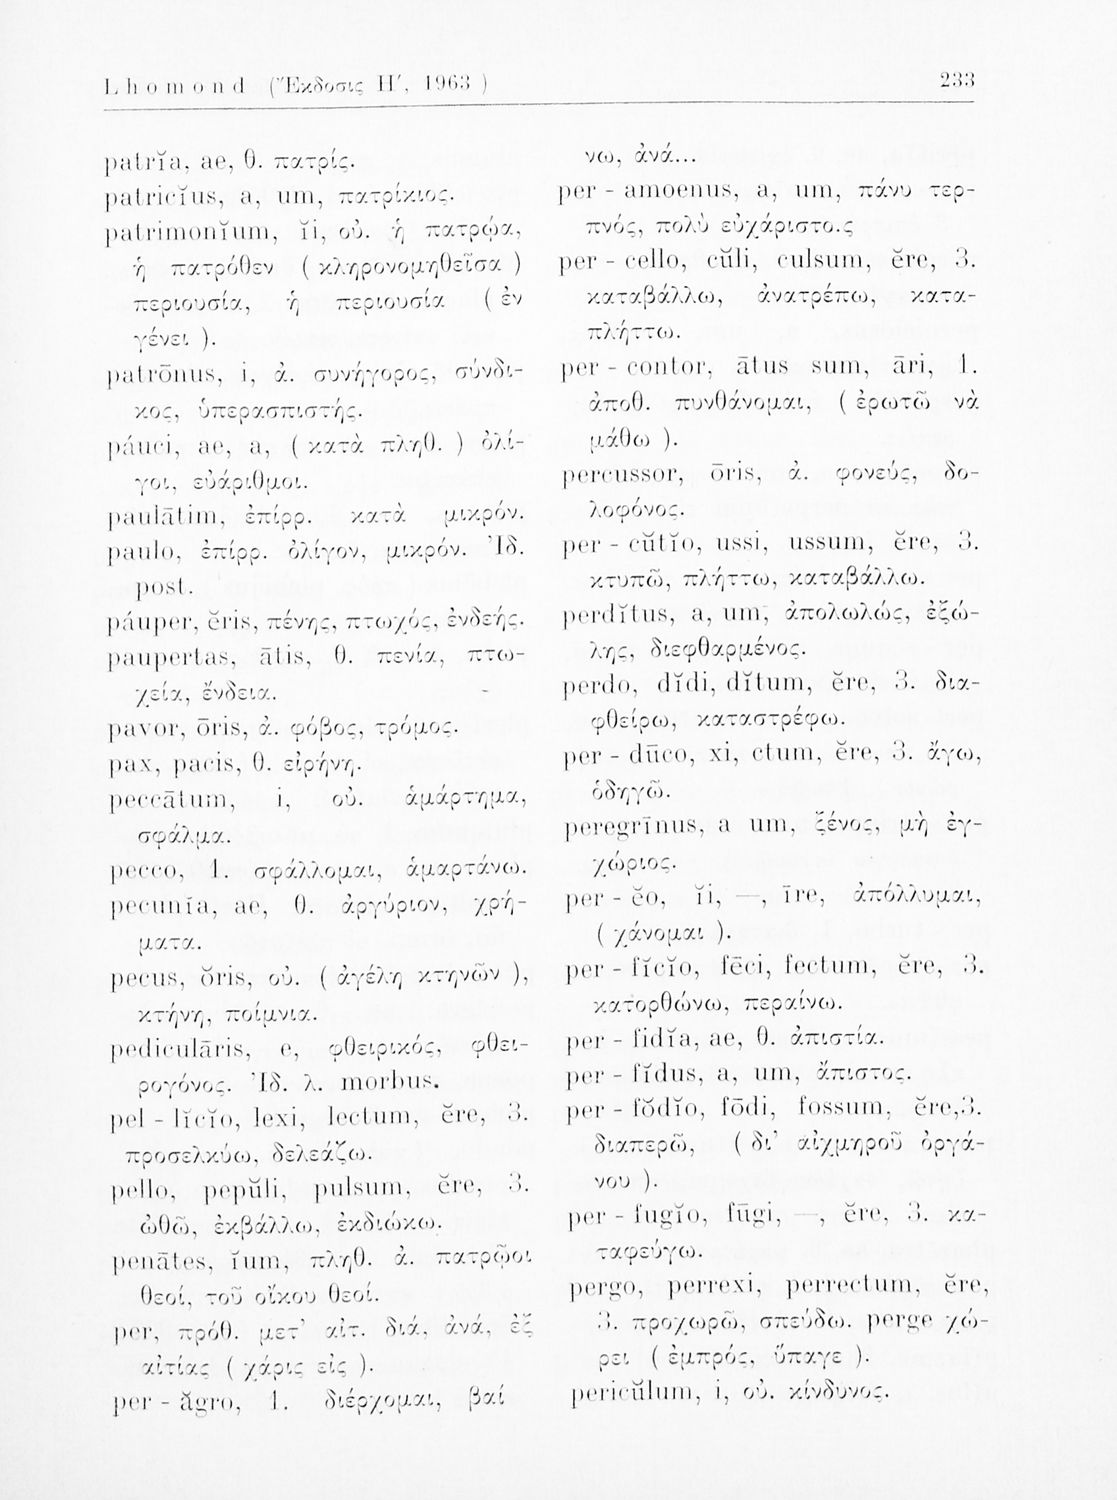 Lhomond (Ἔκδοσις Η′, 1963 )
233
patrĭa, ae, θ. πατρίς.
patricĭus, a, um, πατρίκιος.
patrimonĭum, ĭi, οὐ. ἡ πατρῴα,
ἡ πατρόθεν ( κληρονομηθεῖσα )
περιουσία, ἡ περιουσία ( ἐν
γένει ).
patrōnus, i, ἀ. συνήγορος, σύνδι-
κος, ὑπερασπιστής.
páuci, ae, a, ( κατὰ πληθ. ) ὀλί-
γοι, εὐάριθμοι.
paulātim, ἐπίρρ. κατὰ μικρόν.
paulo, ἐπίρρ. ὀλίγον, μικρόν. Ἰδ.
post.
páuper, ĕris, πένης, πτωχός, ἐνδεής.
paupertas, ātis, θ. πενία, πτω-
χεία, ἔνδεια.
pavor, ōris, ἀ. φόβος, τρόμος.
pax, pacis, θ. εἰρήνη.
peccātum, i, οὐ. ἁμάρτημα,
σφάλμα.
pecco, 1. σφάλλομαι, ἁμαρτάνω.
pecunĭa, ae, θ. ἀργύριον, χρή-
ματα.
pecus, ŏris, οὐ. ( ἀγέλη κτηνῶν ),
κτήνη, ποίμνια.
pediculāris, e, φθειρικός, φθει-
ρογόνος. Ἰδ. λ. morbus.
pel - lĭcĭo, lexi, lectum, ĕre, 3.
προσελκύω, δελεάζω.
pello, pepŭli, pulsum, ĕre, 3.
ὠθῶ, ἐκβάλλω, ἐκδιώκω.
penātes, ĭum, πληθ. ἀ. πατρῷοι
θεοί, τοῦ οἴκου θεοί.
per, πρόθ. μετ᾽ αἰτ. διά, ἀνά, ἐξ
αἰτίας ( χάρις εἰς ).
per - ăgro, 1. διέρχομαι, βαί
νω, ἀνά...
per - amoenus, a, um, πάνυ τερ-
πνός, πολὺ εὐχάριστο.ς
per - cello, cŭli, culsum, ĕre, 3.
καταβάλλω, ἀνατρέπω, κατα-
πλήττω.
per - contor, ātus sum, āri, 1.
ἀποθ. πυνθάνομαι, ( ἐρωτῶ νὰ
μάθω ).
percussor, ōris, ἀ. φονεύς, δο-
λοφόνος.
per - cŭtĭo, ussi, ussum, ĕre, 3.
κτυπῶ, πλήττω, καταβάλλω.
perdĭtus, a, um, ἀπολωλώς, ἐξώ-
λης, διεφθαρμένος.
perdo, dĭdi, dĭtum, ĕre, 3. δια-
φθείρω, καταστρέφω.
per - dūco, xi, ctum, ĕre, 3. ἄγω,
ὁδηγῶ.
peregrīnus, a um, ξένος, μὴ ἐγ-
χώριος.
per - ĕo, ĭi, —, īre, ἀπόλλυμαι,
( χάνομαι ).
per - fĭcĭo, fēci, fectum, ĕre, 3.
κατορθώνω, περαίνω.
per - fidĭa, ae, θ. ἀπιστία.
per - fĭdus, a, um, ἄπιστος.
per - fŏdĭo, fōdi, fossum, ĕre,3.
διαπερῶ, ( δι᾽ αἰχμηροῦ ὀργά-
νου ).
per - fugĭo, fūgi, —, ĕre, 3. κα-
ταφεύγω.
pergo, perrexi, perrectum, ĕre,
3. προχωρῶ, σπεύδω. perge χώ-
ρει ( ἐμπρός, ὕπαγε ).
pericŭlum, i, οὐ. κίνδυνος.